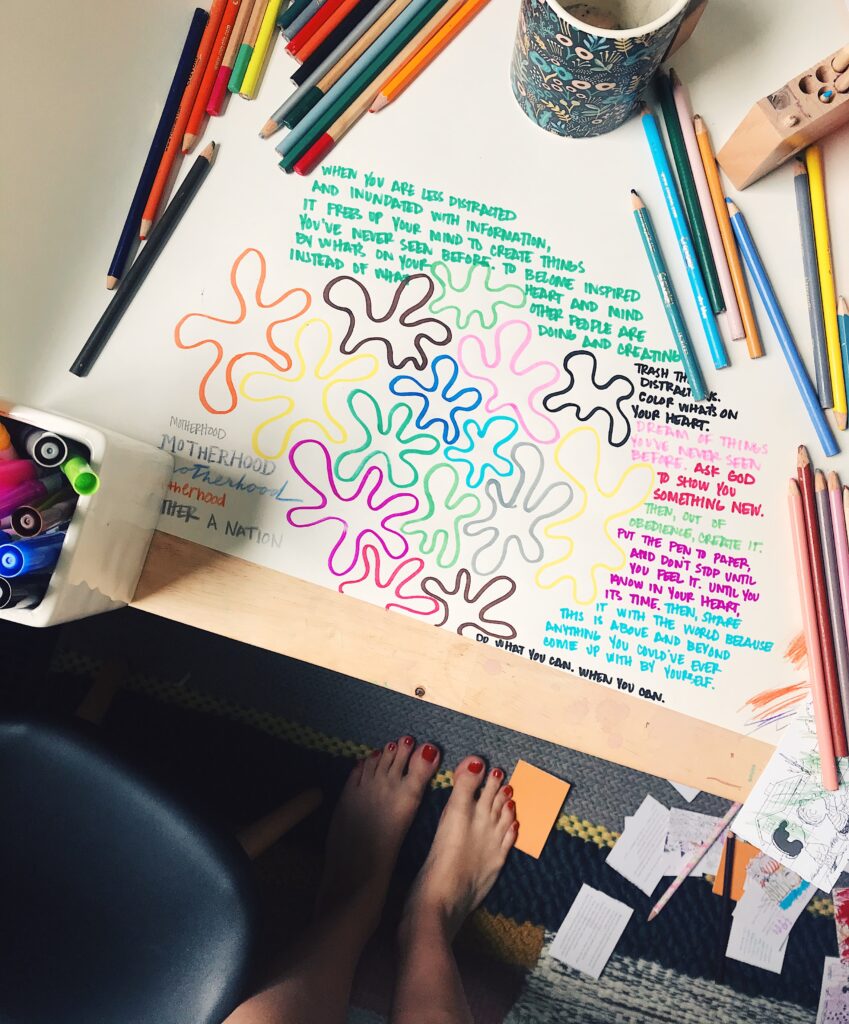 WHEN YOU ARE LESS DISTRACTED
AND INUNDATED WITH INFORMATION,
IT FREES UP YOUR MIND TO CREATE THINGS
YOU'VE NEVER SEEN BEFORE. TO BECOME INSPIRED
BY WHAT'S ON YOUR HEART AND MIND
INSTEAD OF WHAT OTHER PEOPLE ARE
DOING AND CREATING
TRASH THE
COLOR WHAT'S ON
YOUR HEART.
DREAM OF THINGS
YOU'VE NEVER SEEN
BEFORE. ASK GOD
TO SHOW YOU
SOMETHING NEW.
THEN, OUT OF
OBEDIENCE, CREATE IT.
PUT THE PEN TO PAPER,
AND DON'T STOP UNTIL
YOU FEEL IT. UNTIL YOU
KNOW IN YOUR HEART,
IT'S TIME. THEN, SHARE
IT WITH THE WORLD BECAUSE
THIS IS ABOVE AND BEYOND
ANYTHING YOU COULD'VE EVER
COME UP WITH BY YOURSELF.
DO WHAT YOU CAN. WHEN YOU CAN.
MOTHERHOOD
MOTHERHOOD
Motherhood
otherhood
THER A NATION